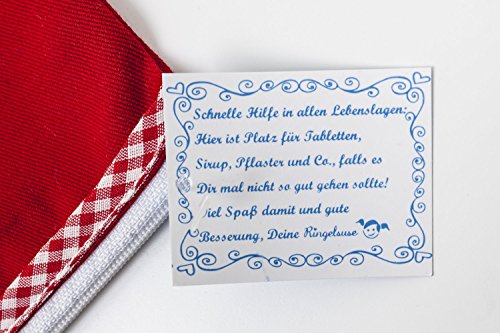 Schnelle Hilfe in allen Lebenslagen:
Hier ist Platz für Tabletten,
Sirup, Pflaster und Co., falls es
Dir mal nicht so gut gehen sollte!
Viel Spaß damit und gute
Besserung, Deine Ringelsuse